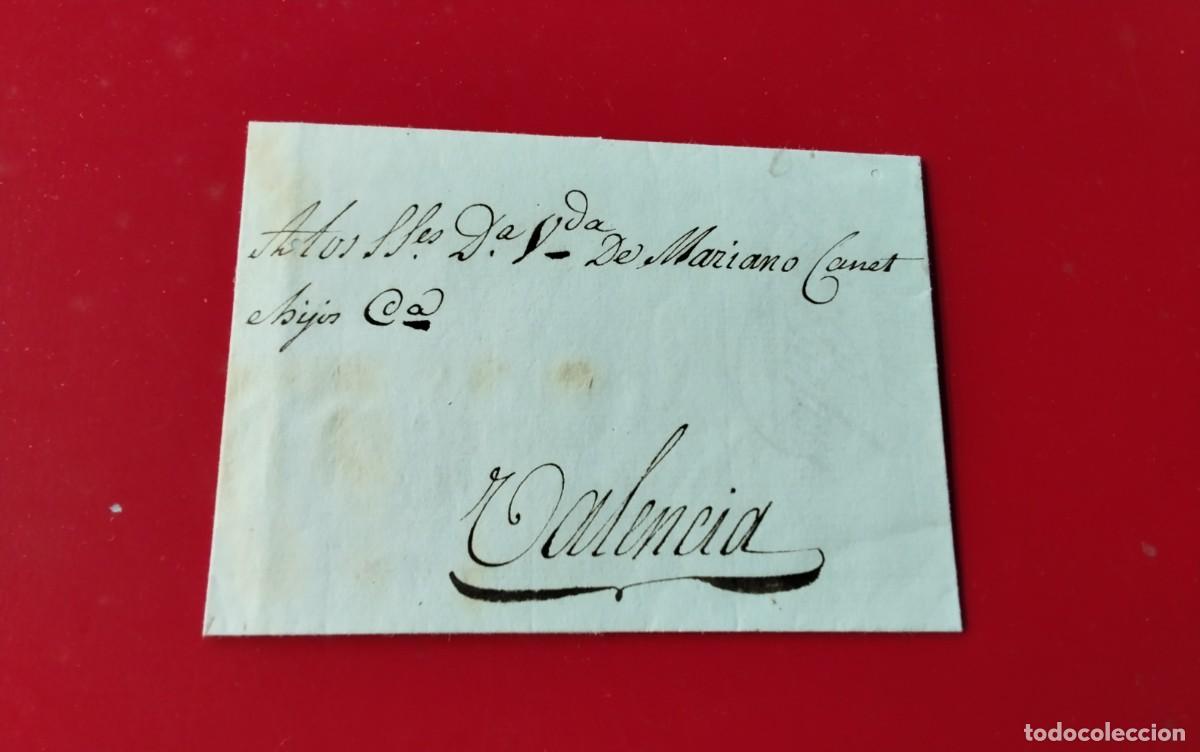 A los SSes. Da. Vda De Mariano Canet
e hijos Ca
Valencia
todocoleccion